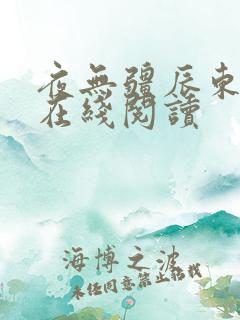 夜無疆辰東
在綫閱讀
海博之波
未经同意禁止转载